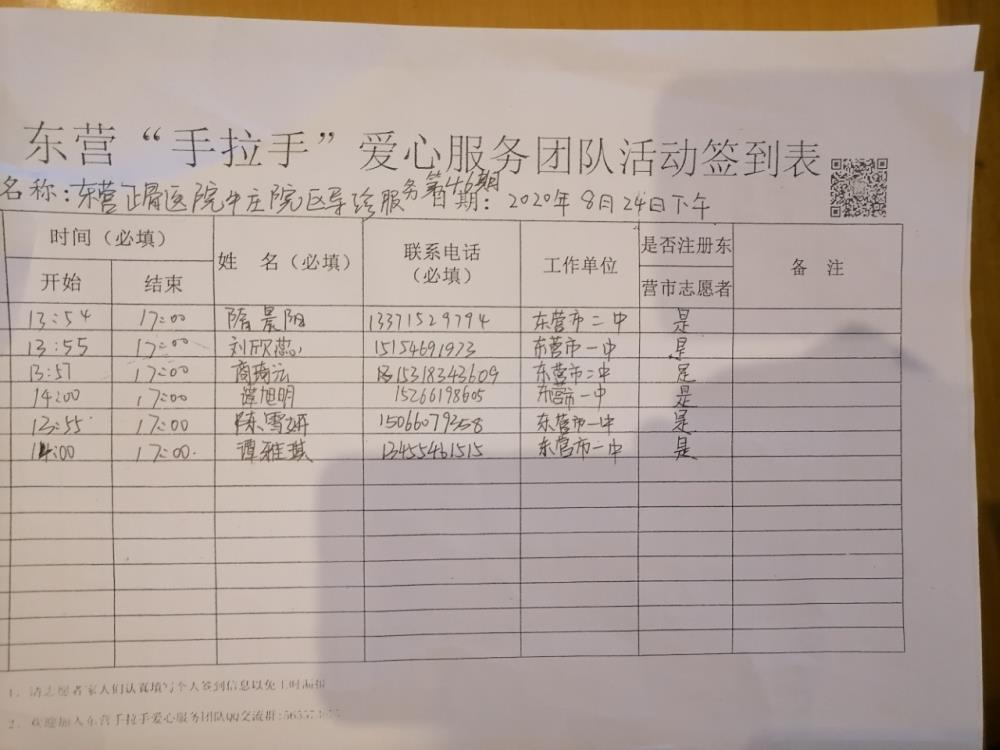 东营“手拉手”爱心服务团队活动签到表
名称:东营正骨医院牛庄院区导诊服务第46期 日期:2020年8月24日下午
时间(必填) 姓 名(必填) 联系电话(必填) 工作单位 是否注册东营市志愿者 备 注
开始 结束
13:54 17:00 隋晨阳 13371529794 东营市二中 是
13:55 17:00 刘欣蕊 15154691973 东营市一中 是
13:57 17:00 商琦沄 15318343609 东营市二中 是
14:00 17:00 谭旭明 15266198605 东营市一中 是
13:55 17:00 陈雪妍 15066079358 东营市一中 是
14:00 17:00 谭雅琪 13455461515 东营市一中 是
1、请志愿者家人们认真填写个人签到信息以免工时漏报
2、欢迎加入东营手拉手爱心服务团队QQ交流群: